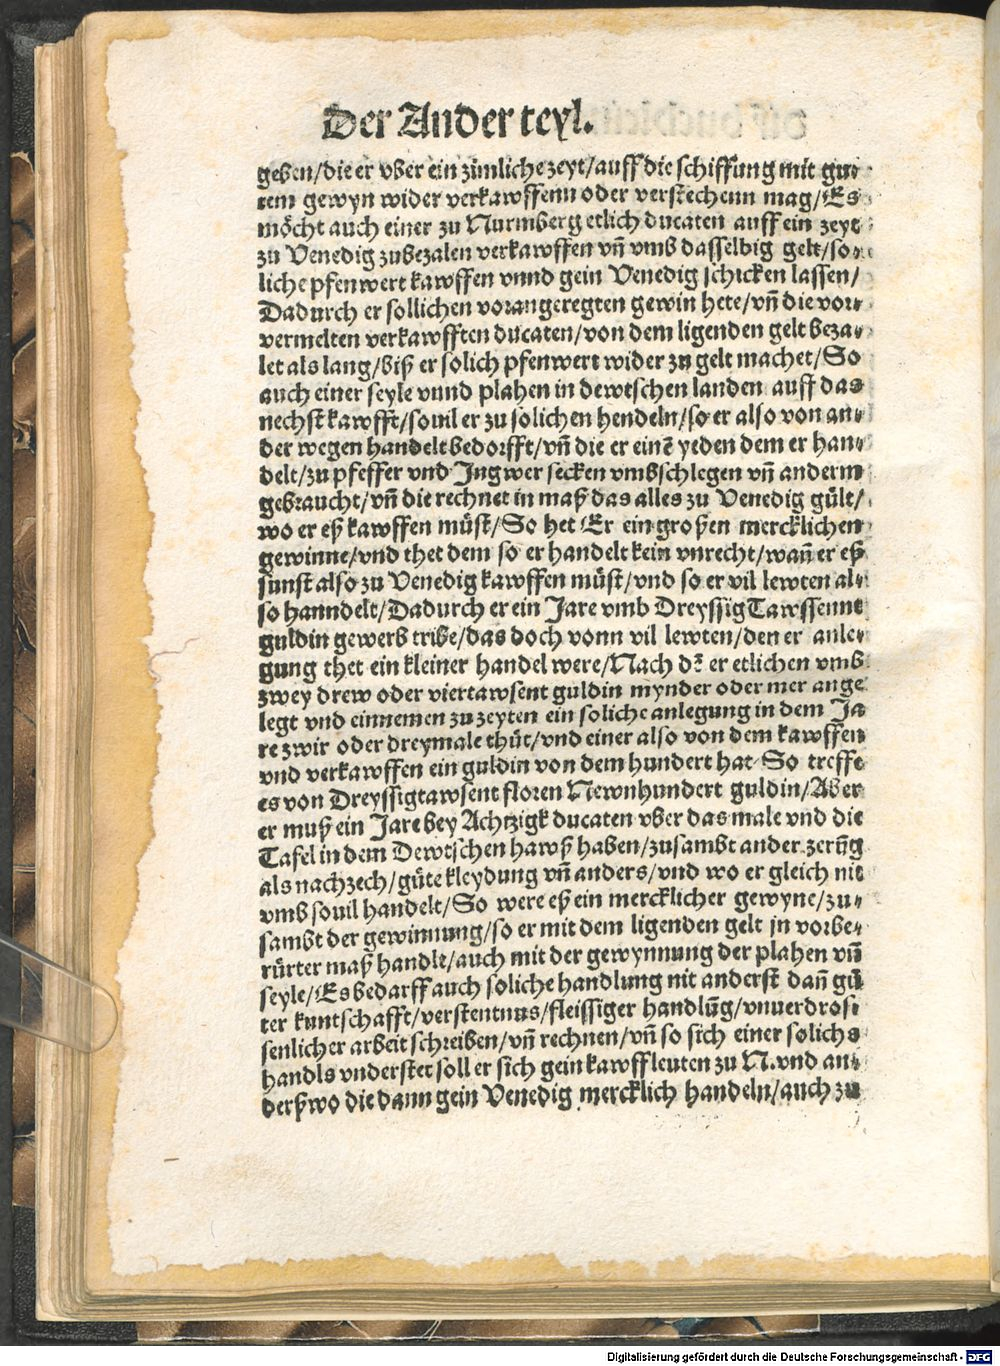 Der Ander teyl.
geben/die er vber ein zimliche zeyt/auff die schiffung mit gu⸗
tem gewyn wider verkawffenn oder verstechenn mag/Es
möcht auch einer zu Nurmberg etlich ducaten auff ein zeyt
zu Venedig zubezalen verkawffen vn̄ vmb dasselbig gelt/so⸗
liche pfenwert kawffen vnnd gein Venedig schicken lassen/
Dadurch er sollichen vorangeregten gewin hete/vn̄ die vor⸗
vermelten verkawfften ducaten/von dem ligenden gelt beza⸗
let als lang/biß er solich pfenwert wider zu gelt machet/So
auch einer seyle vnnd plahen in dewtschen landen auff das
nechst kawfft/souil er zu solichen hendeln/so er also von an⸗
der wegen handelt bedorfft/vn̄ die er einē yeden dem er han⸗
delt/zu pfeffer vnd Ingwer secken vmbschlegen vn̄ anderm
gebraucht/vn̄ die rechnet in maß das alles zu Venedig gült/
wo er eß kawffen müst/So het Er ein großen mercklichen
gewinne/vnd thet dem so er handelt kein vnrecht/wan̄ er eß
sunst also zu Venedig kawffen müst/vnd so er vil lewten al⸗
so hanndelt/Dadurch er ein Jare vmb Dreyssig Tawssennt
guldin gewerb tribe/das doch vonn vil lewten/den er anle⸗
gung thet ein kleiner handel were/Nach dē er etlichen vmb
zwey drew oder viertawsent guldin mynder oder mer ange
legt vnd einnemen zu zeyten ein soliche anlegung in dem Ja
re zwir oder dreymale thüt/vnd einer also von dem kawffen
vnd verkawffen ein guldin von dem hundert hat So treffe
es von Dreyssigtawsent floren Newnhundert guldin/Aber
er muß ein Jare bey Achtzigk ducaten vber das male vnd die
Tafel in dem Dewtschen hawß haben/zusambt ander zerūg
als nachzech/güte kleydung vn̄ anders/vnd wo er gleich nit
vmb souil handelt/So were eß ein mercklicher gewyne/zu⸗
sambt der gewinnung/so er mit dem ligenden gelt jn vorbe⸗
rürter maß handlt/auch mit der gewynnung der plahen vn̄
seyle/Es bedarff auch soliche handlung nit anderst dan̄ gü
ter kuntschafft/verstentnus/fleissiger handlūg/vnuerdros
senlicher arbeit schreiben/vn̄ rechnen/vn̄ so sich einer solichs
handls vnderstet soll er sich gein kawffleuten zu N. vnd an⸗
derßwo die dann gein Venedig mercklich handeln/auch zu
Digitalisierung gefördert durch die Deutsche Forschungsgemeinschaft - DFG